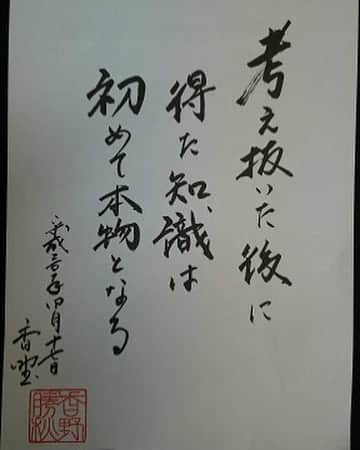 考え抜いた後に
得た知識は
初めて本物となる
平成三〇年四月十七日
香
香野
勝